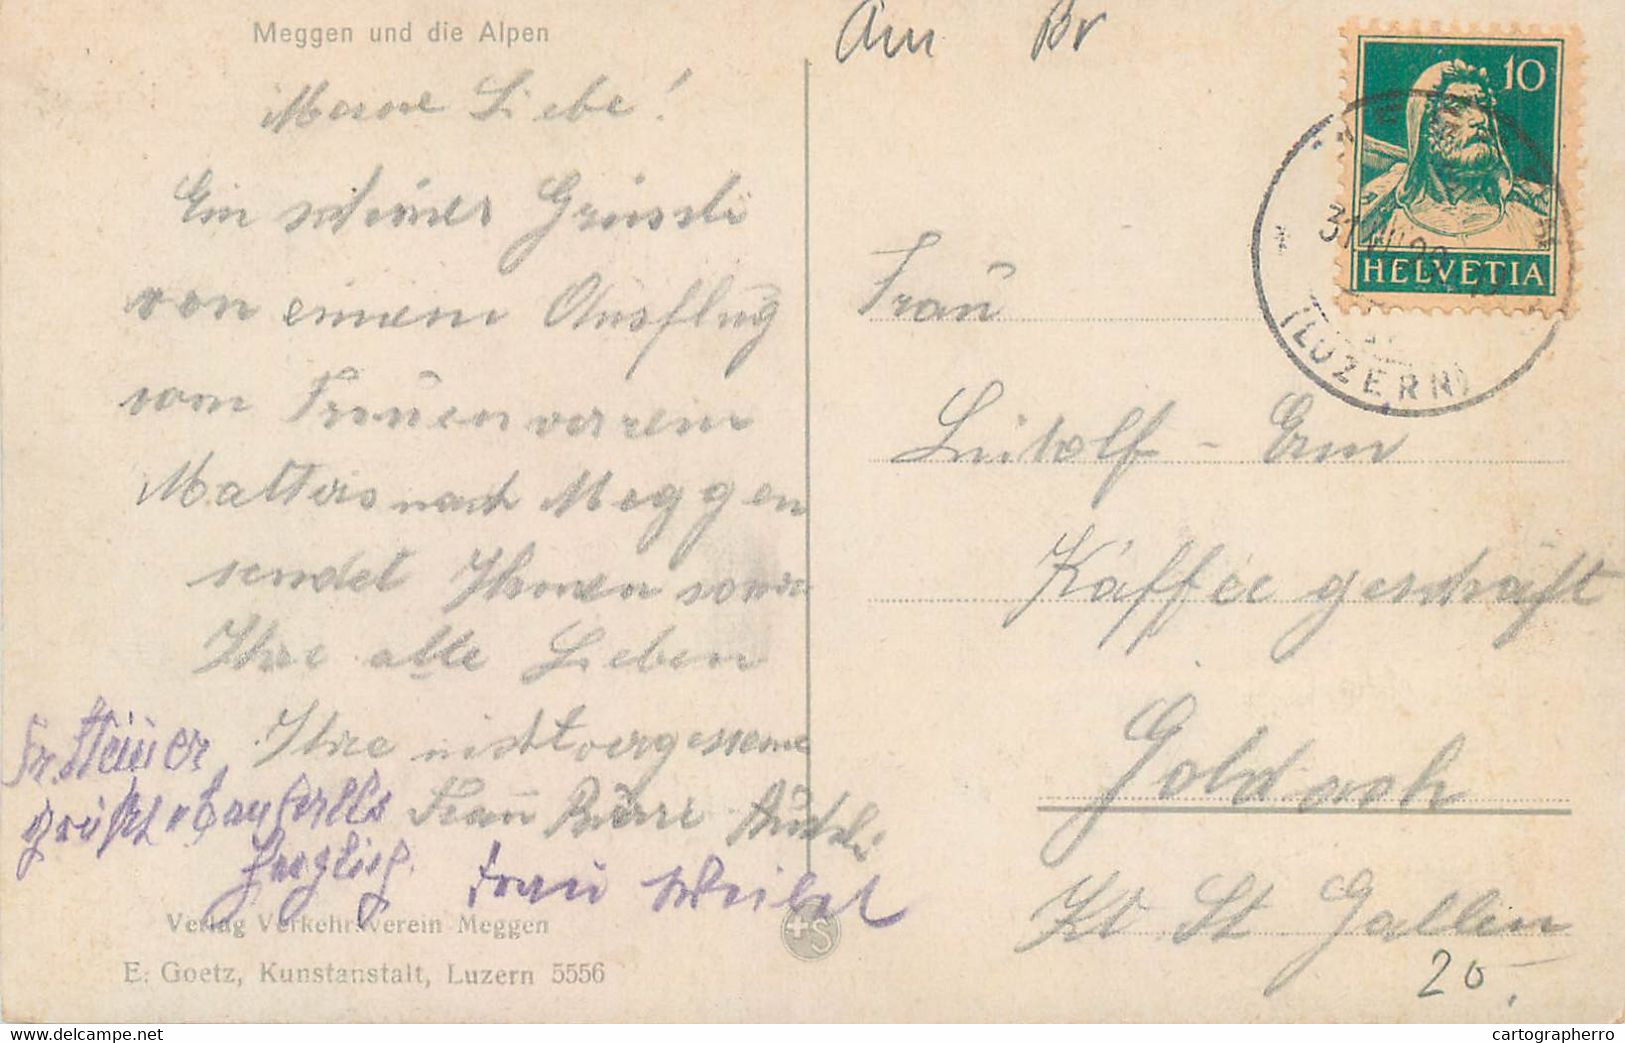 Meggen und die Alpen
Meine Liebe!
Ein schönes Grüssli
von einem Ausflug
vom Frauenverein
Malters nach Meggen
sendet Ihnen sowie
Ihre alle Lieben
Ihre nicht vergessene
Frau
Fr. Steiner
grüßt ebenfalls
herzlich.
Frau Weibel
Verlag Verkehrsverein Meggen
E. Goetz, Kunstanstalt, Luzern 5556
+S
Am Br
10
HELVETIA
31
(LUZERN)
Frau
Luitolf - Erni
Kaffee geschäft
Goldach
Kt St Gallen
20.-
cartographerro